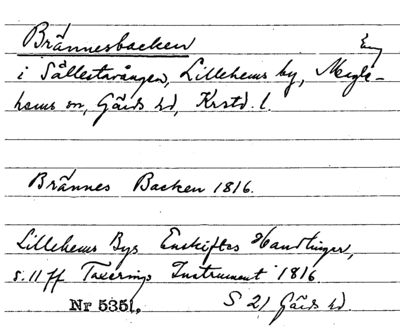 Brännesbacken Eng
i Sällestavången, Lillehems by, Magle-
hems sn, Gärds hd, Krstd. l.
Brännes Backen 1816.
Lillehems Bys Enskiftes Handlingar,
s. 11 ff Taxerings Instrument 1816
Nr 5351. S 21 Gärds hd.